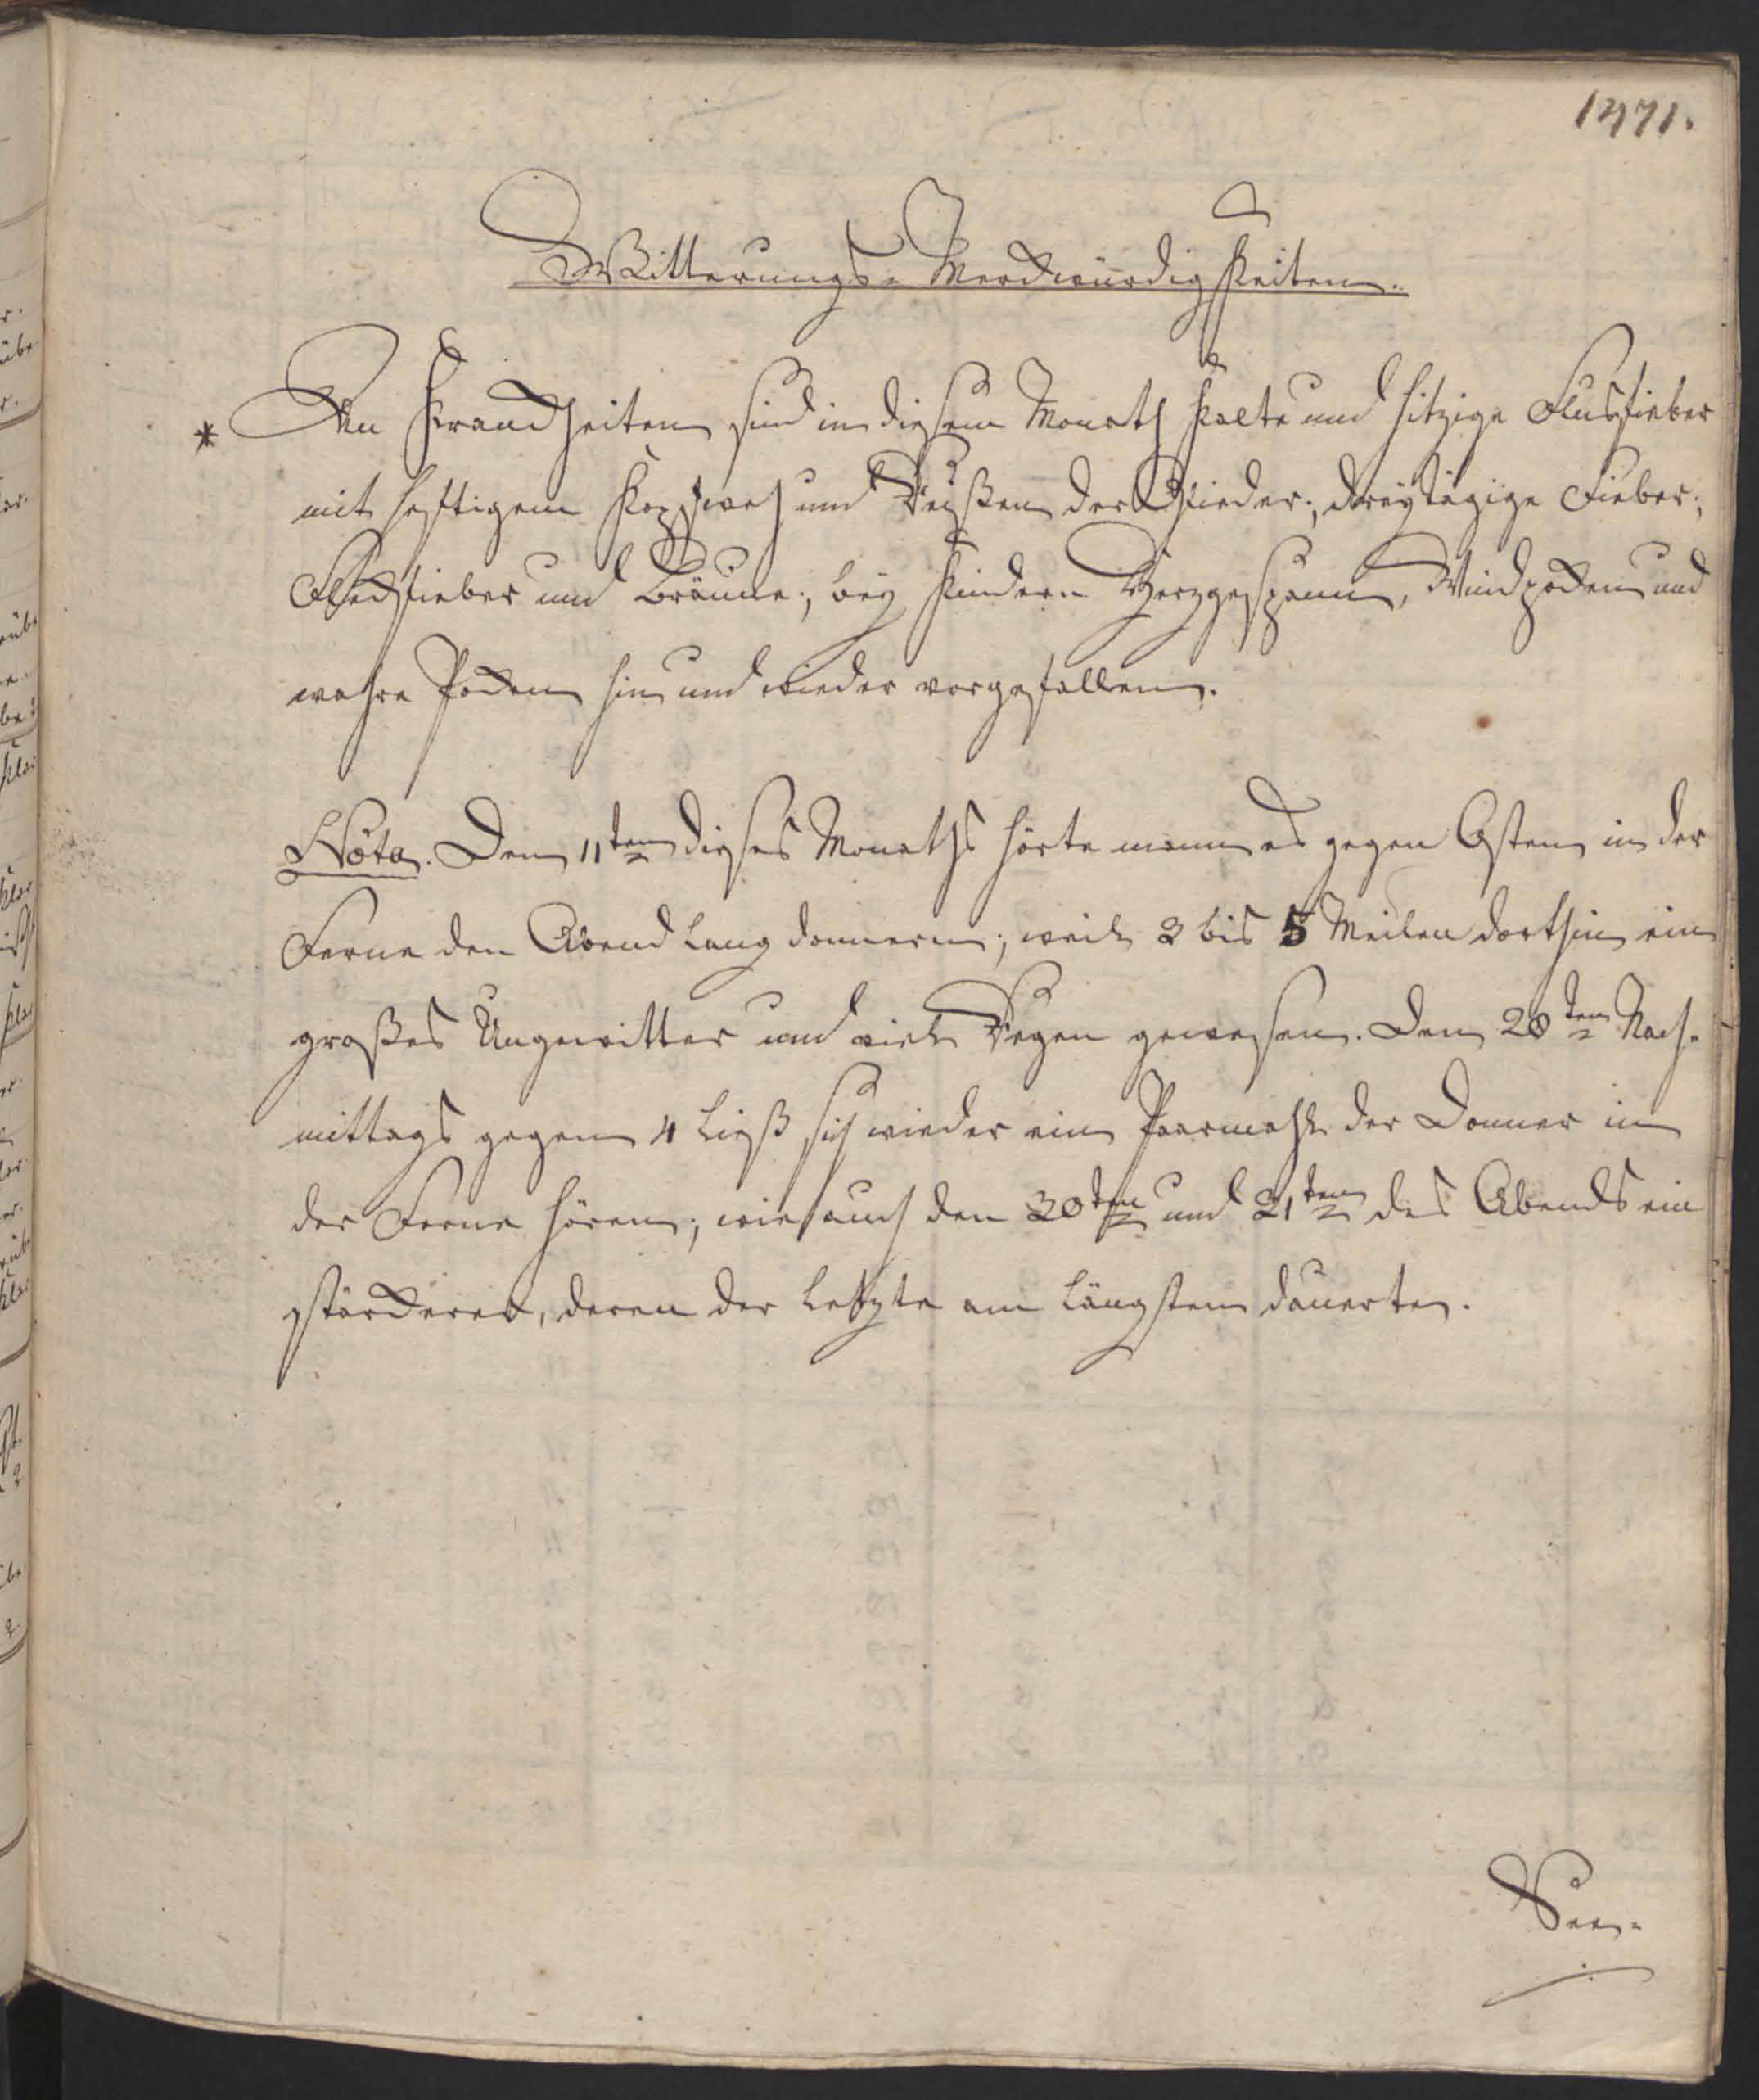 1471.
Witterungs-Merckwürdigkeiten.
* An Kranckheiten sind in diesem Monath kalte und hitzige Flusfieber
mit heftigem Kopfweh und Reißen der Glieder; dreytägige Fieber;
Fleckfieber und Bräune; bey Kindern Herzgespann, Windpocken und
wahre Pocken hin und wieder vorgefallen.
Nota. Den 11ten dieses Monaths hörte man es gegen Osten in der
Ferne den Abend lang donnern; weil 3 bis 5 Meilen dorthin ein
großes Ungewitter und viel Regen gewesen. Den 20ten Nach-
mittags gegen 4 ließ sich wieder ein Paarmahl der Donner in
der Ferne hören; wie auch den 30ten und 31ten des Abends ein
stärckerer, deren der letzte am längsten dauerte.